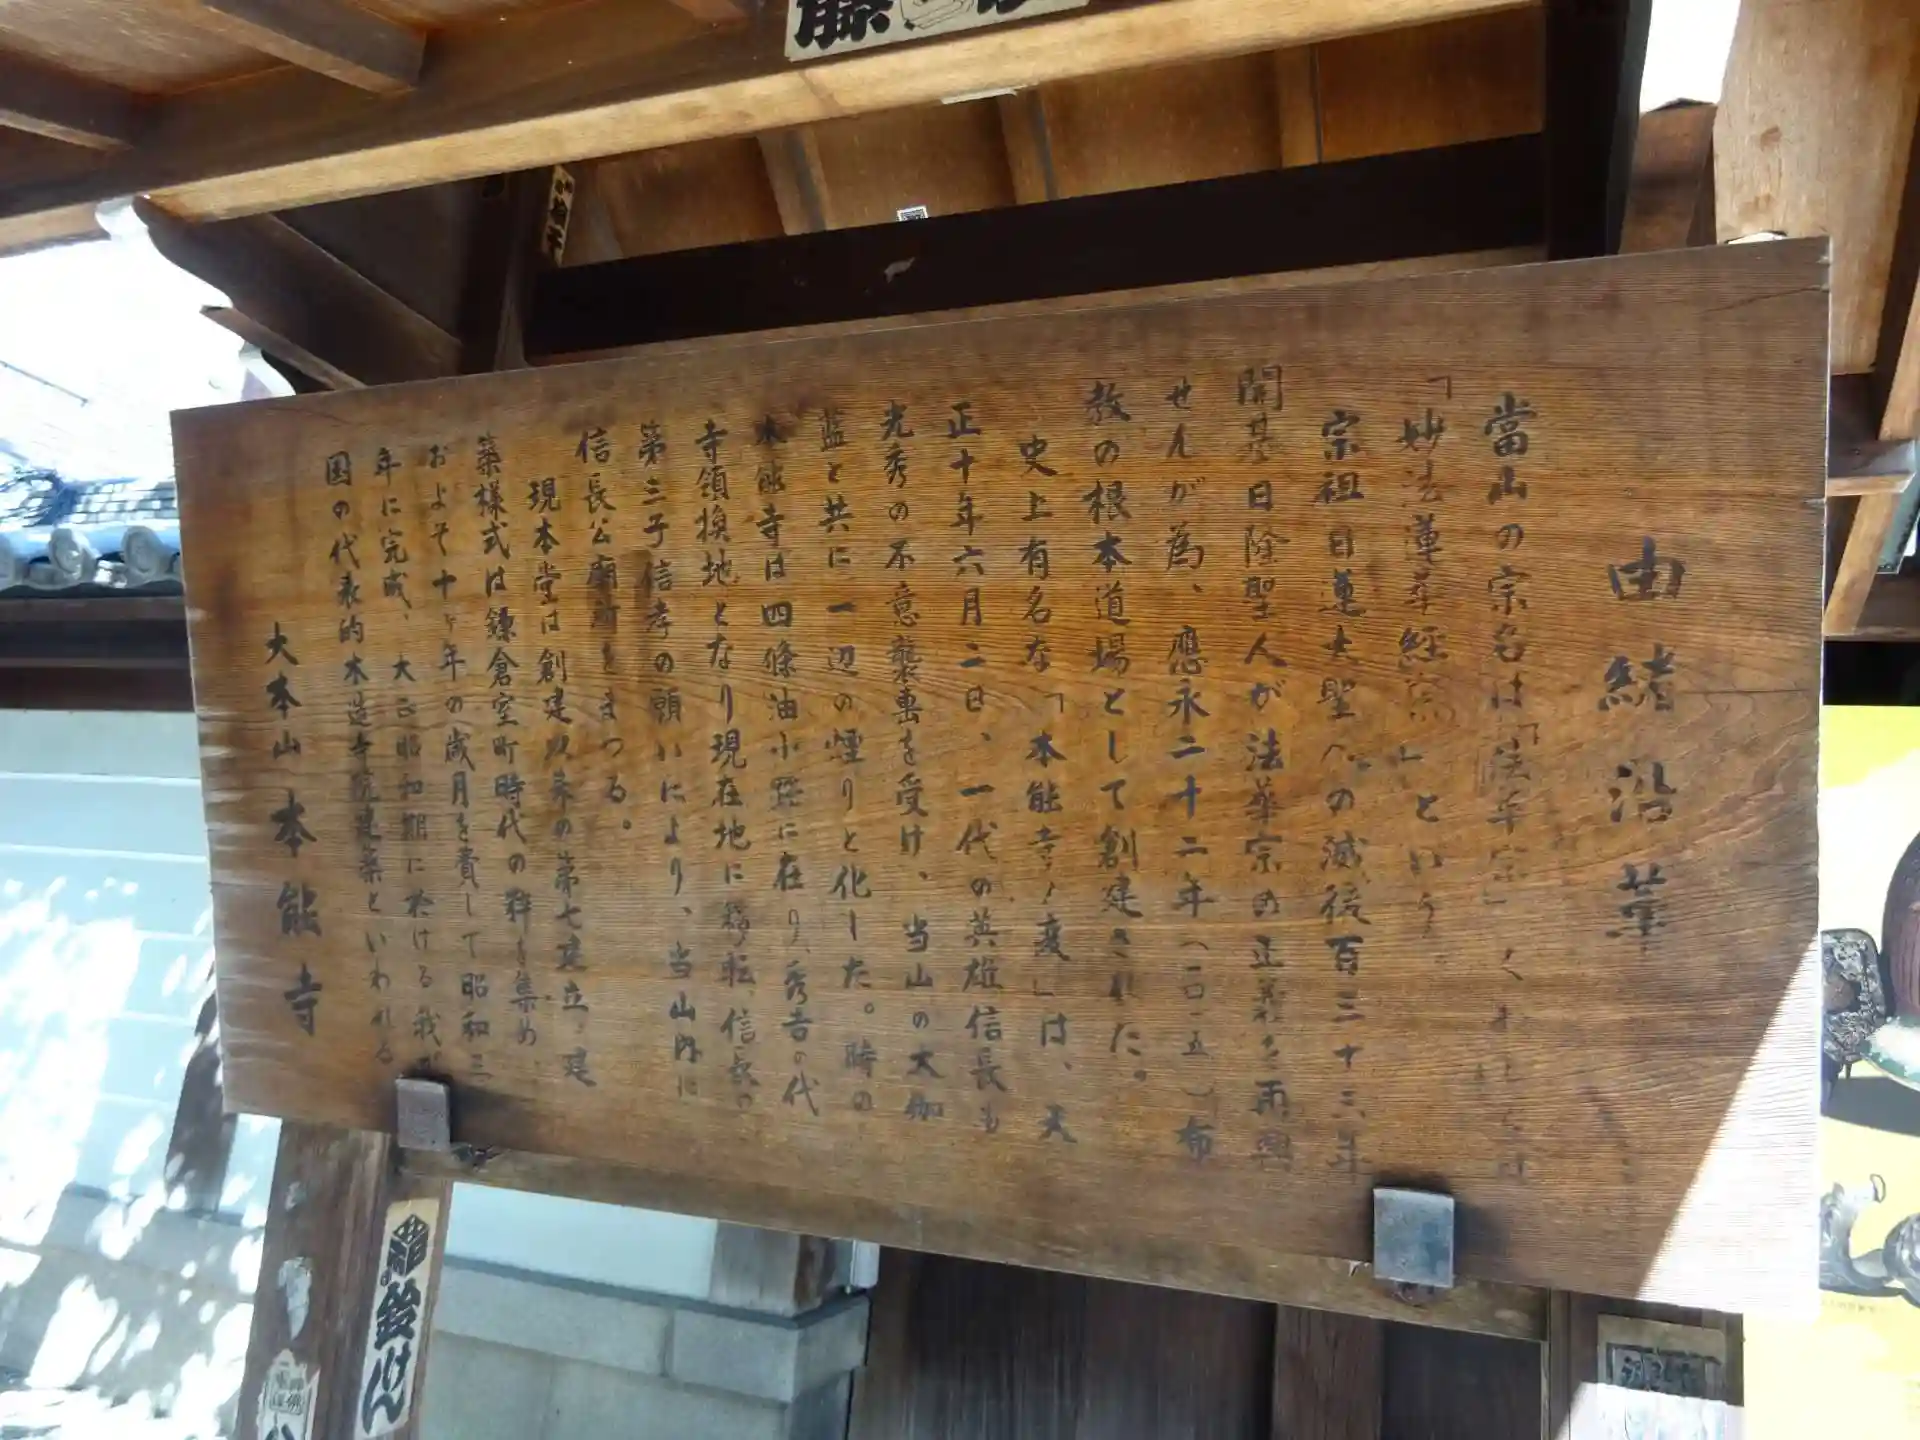 由緒沿革
當山の宗名は「法華宗」くわしくは
「妙法蓮華経宗」という
宗祖日蓮大聖人の滅後百三十三年
開基日隆聖人が法華宗の正義を再興
せんが為、應永二十二年(一四一五)布
教の根本道場として創建された。
史上有名な「本能寺ノ変」は、天
正十年六月二日、一代の英雄信長も
光秀の不意襲撃を受け、当山の大伽
藍と共に一辺の煙りと化した。時の
本能寺は四條油小路に在り、秀吉の代
寺領換地となり現在地に移転、信長の
第三子信孝の願いにより、当山内に
信長公廟所をまつる。
現本堂は創建以来の第七建立、建
築様式は鎌倉室町時代の粋を集め、
およそ十ヶ年の歳月を費して昭和三
年に完成、大正昭和期に於ける我が
国の代表的木造寺院建築といわれる
大本山 本能寺
鈴けん